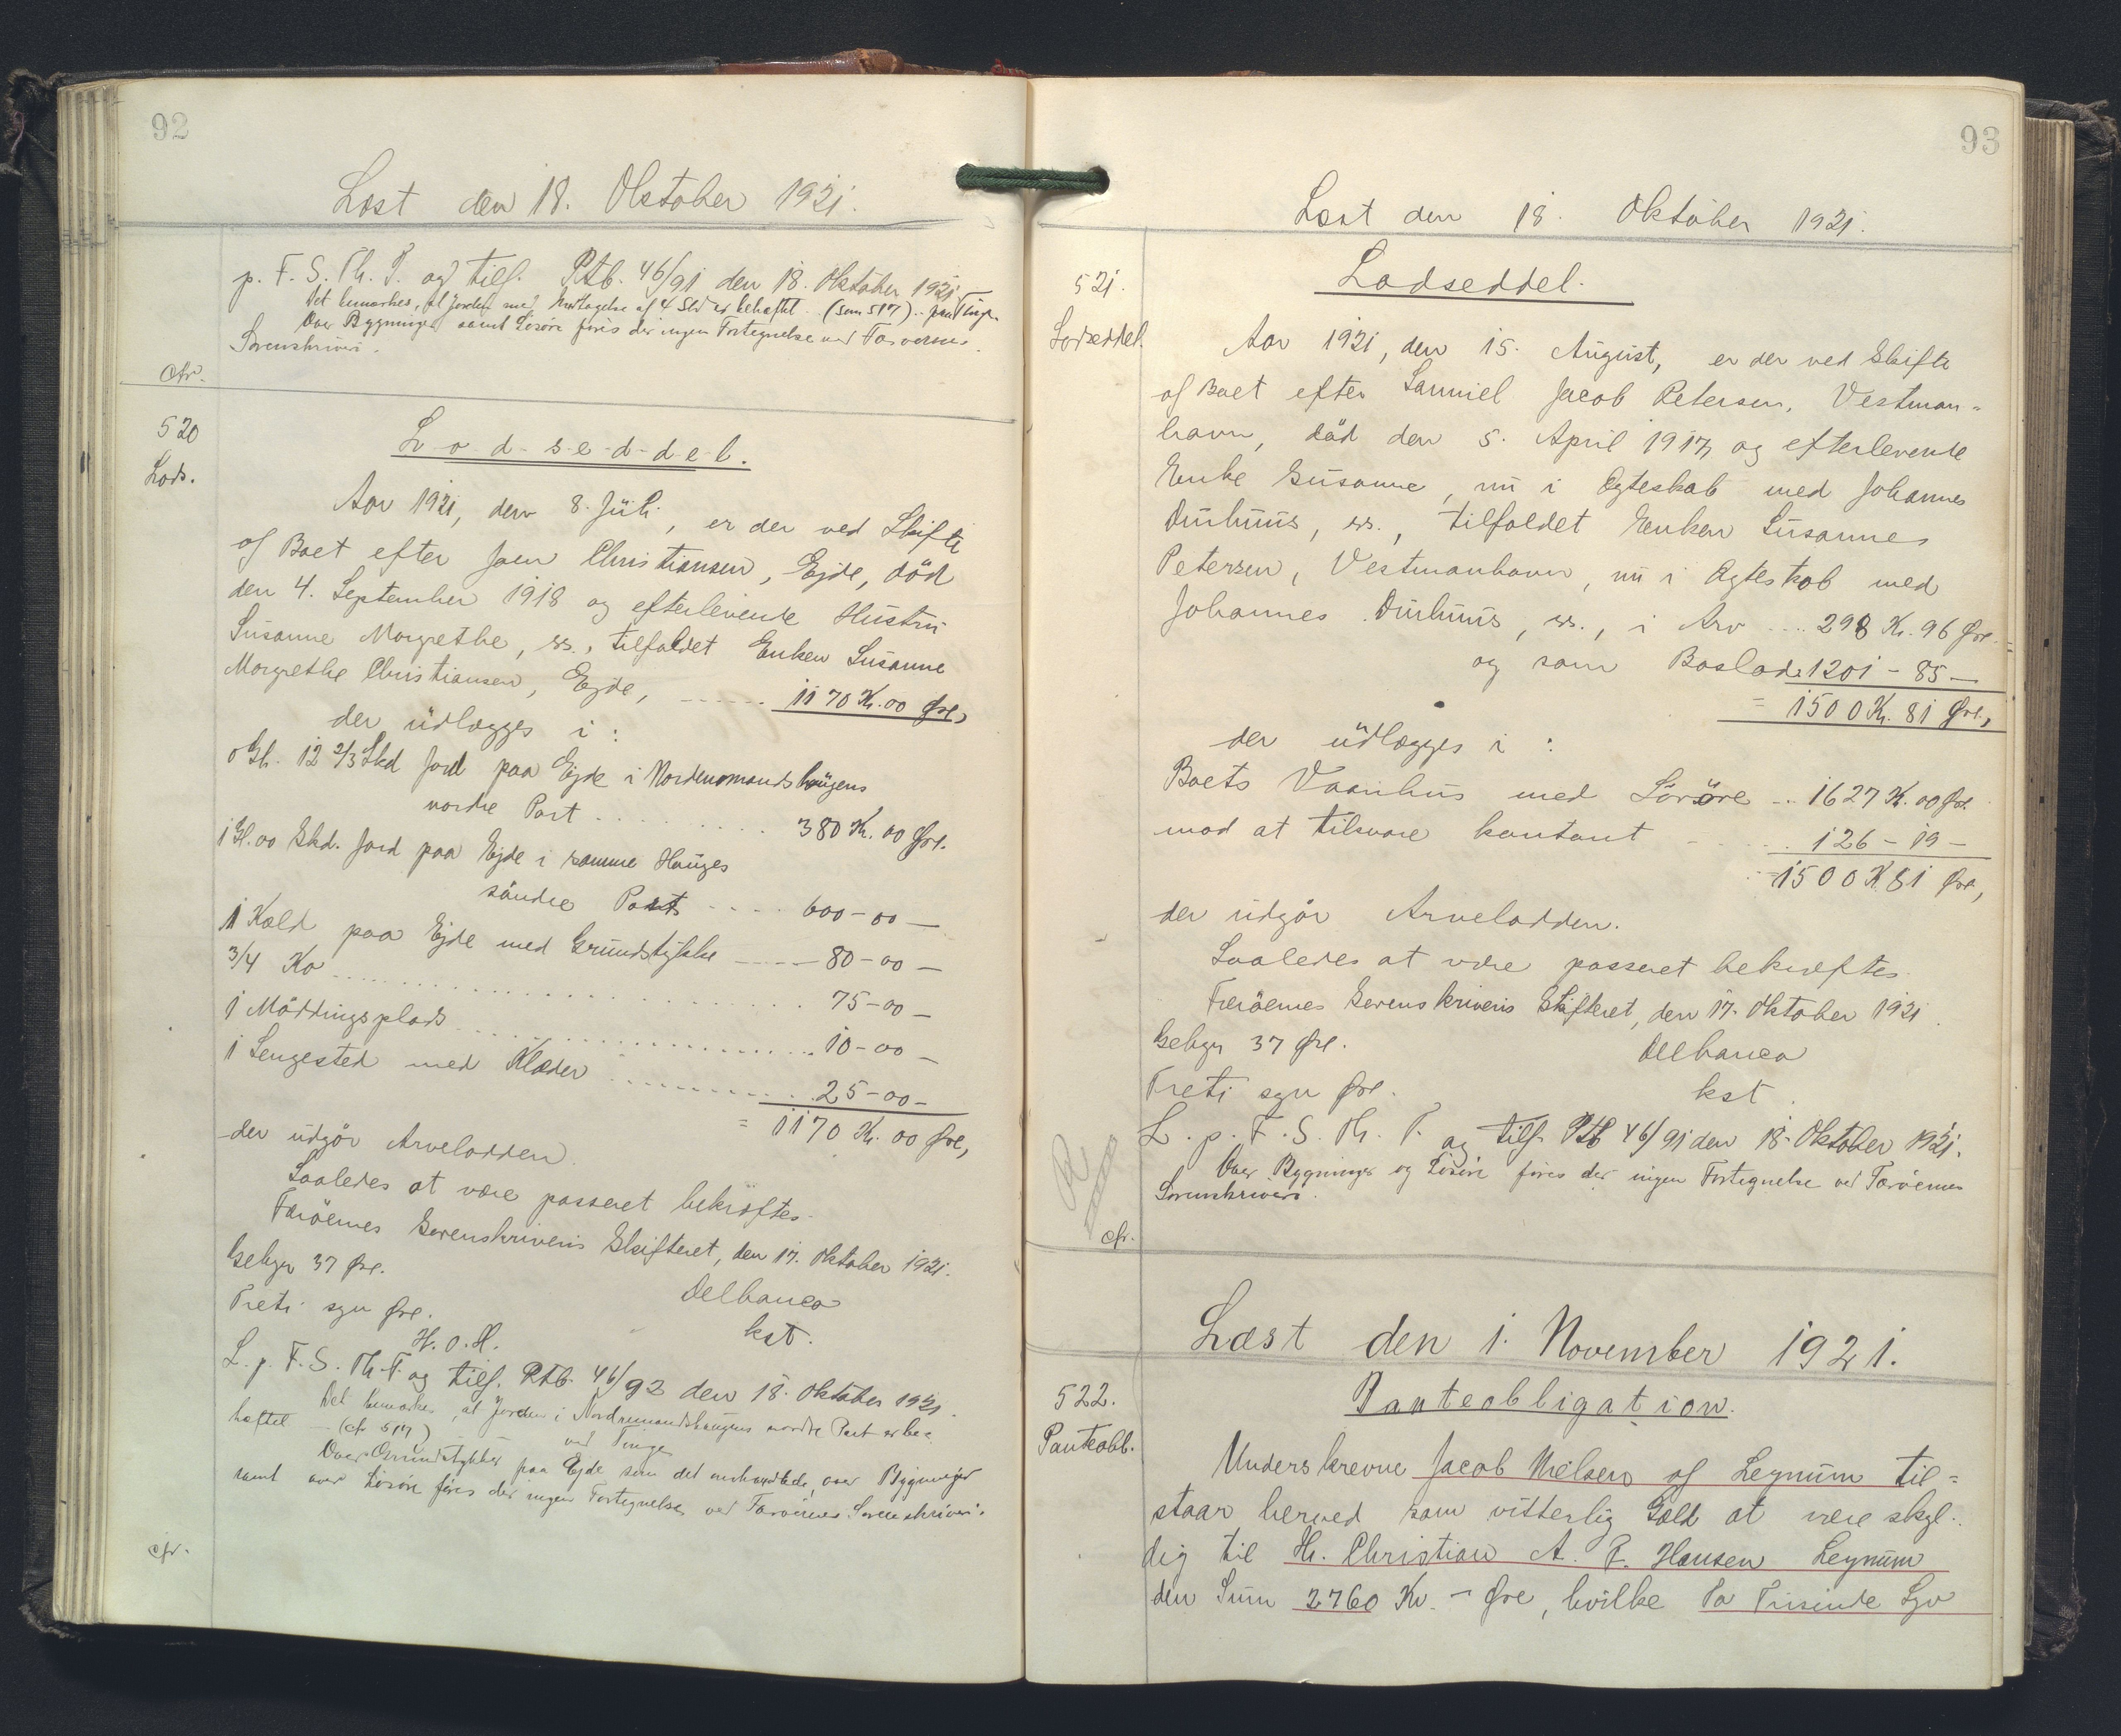 92
Læst den 18. Oktober 1921.
p. F. S. Th. P. og tilf. Ptb. 46/91 den 18. Oktober 1921
Det bemærkes, at Jorden med Undtagelse af 4 Skd er behæftet. (som 517) ..
Over Bygninger samt Lösöre föres der ingen Fortegnelse ved Færöernes
Sorenskriveri.
cfr.
520
Lods.
L-o-d-s-e-d-d-e-l.
Aar 1921, den 8. Juli, er der ved Skifte
af Boet efter Joen Christiansen, Ejde, död
den 4. September 1918 og efterlevende Hustru
Susanne Margrethe, ss., tilfaldet Enken Susanne
Margrethe Christiansen, Ejde, ------ 1170 Kr. 00 Øre,
der udlægges i :
0 Gl. 12 2/3 Skd Jord paa Ejde i Nordenomandshaugens
nordre Part ......... 380 Kr. 00 Øre.
1 Gl. 00 Skd. Jord paa Ejde i samme Hauges
söndre Part ---- 600-00-
1 Kald paa Ejde med Grundstykke ---- 80-00-
3/4 Ko .................... 75-00-
1 Möddingsplads .................... 10-00-
1 Sengested med Klæder ............ 25-00-
= 1170 Kr. 00 Øre,
der udgör Arvelodden.
Saaledes at være passeret bekräftes.
Færöernes Sorenskriveris Skifteret, den 17. Oktober 1921.
Gebyr 37 Øre.
Delbanco
Treti syv Øre.
kst.
H. O. H.
L. p. F. S. Th. P. og tilf. Ptb. 46/92 den 18. Oktober 1921.
Det bemærkes, at Jorden i Nordremandshaugens nordre Part er be-
hæftet - (cfr 517) ved Tinge
Over Grundstykker paa Ejde som det omhandlede, over Bygninger
samt over Lösöre föres der ingen Fortegnelse ved Færöernes Sorenskriveri.
cfr.
93
Læst den 18. Oktober 1921.
521.
Lodseddel.
Lodseddel.
Aar 1921, den 15. August, er der ved Skifte
af Boet efter Samuel Jacob Petersen, Vestman-
havn, död den 5. April 1917, og efterlevende
Enke Susanne, nu i Ægteskab med Johannes
Durhuus, ss., tilfaldet Enken Susannes
Petersen, Vestmanhavn, nu i Ægteskab med
Johannes Durhuus, ss., i Arv .... 298 Kr. 96 Øre.
og som Boslod 1201 - 85 -
= 1500 Kr. 81 Øre,
der udlægges i :
Boets Vaanhus med Lösöre .. 1627 Kr. 00 Øre.
mod at tilsvare kontant ..... 126 - 19 -
= 1500 K 81 Øre,
der udgör Arvelodden.
Saaledes at være passeret bekræftes.
Færöernes Sorenskriveris Skifteret, den 17. Oktober 1921.
Gebyr 37 Øre.
Delbanco
Treti syv Øre.
kst.
L. p. F. S. Th. P. og tilf. Ptb 46/91 den 18. Oktober 1921.
Over Bygninger og Lösöre föres der ingen Fortegnelse ved Færöernes
Sorenskriveri.
R
cfr.
Læst den 1. November 1921.
522.
Panteobl.
Panteobligation.
Underskrevne Jacob Nielsen af Leynum til-
staar herved som vitterlig Gæld at være skyl-
dig til Hr. Christian A. P. Hansen Leynum
den Sum 2760 Kr. - Øre, hvilke To Tusinde Syv